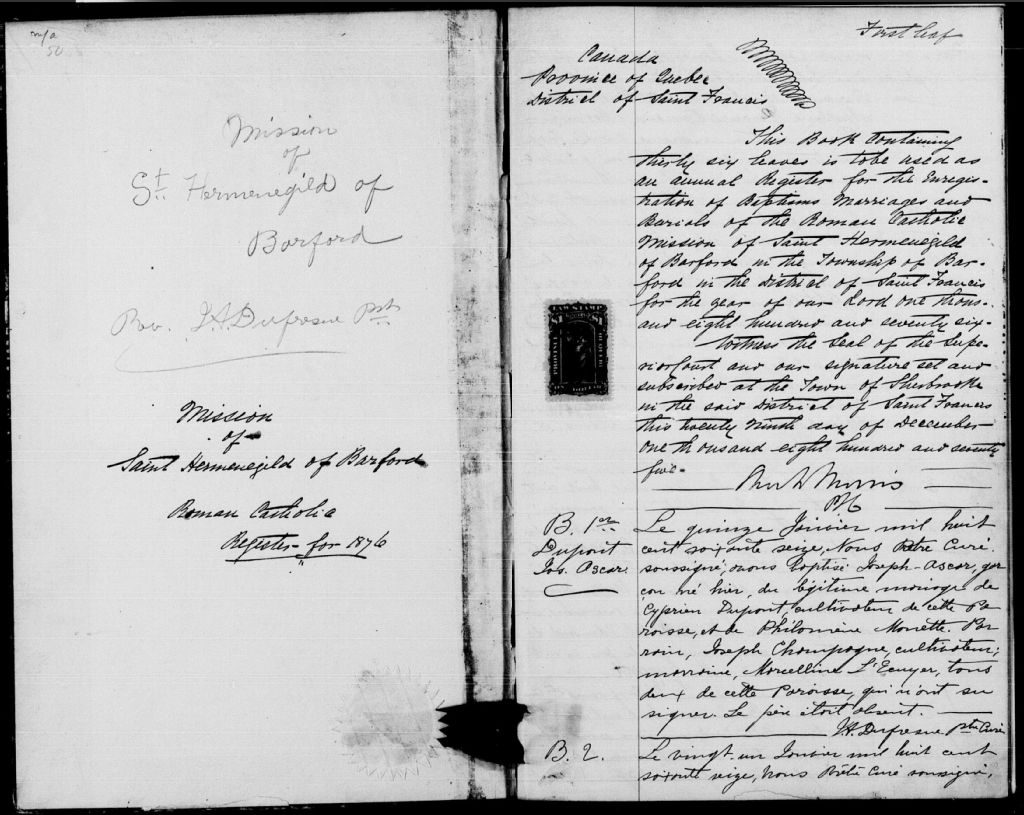 n/a
50
Mission
of
St. Hermenegild of
Barford
Rev. J.A. Dufresne Pst
Mission
of
Saint Hermenegild of Barford
Roman Catholic
Register for 1876
First leaf
Canada
Province of Quebec
District of Saint Francis
This Book Containing
thirty six leaves is to be used as
an annual Register for the Enregis-
tration of Baptisms Marriages and
Burials of the Roman Catholic
Mission of Saint Hermenegild
of Barford in the Township of Bar-
ford in the District of Saint Francis
for the year of our Lord one thous-
and eight hundred and seventy six.
Witness the Seal of the Supe-
rior Court and our signature set and
subscribed at the Town of Sherbrooke
in the said District of Saint Francis
this twenty ninth day of December
one thousand eight hundred and seventy
five.
Morris
B. 1er
Dupont
Jos. Ascar
Le quinze Janvier mil huit
cent soixante seize, Nous Prêtre Curé
soussigné, avons baptisé Joseph-Ascar, gar
çon né hier, du légitime mariage de
Cyprien Dupont, cultivateur de cette Pa
roisse, et de Philomène Monette. Par
rain, Joseph Champagne, cultivateur;
marraine, Marcelline L'Ecuyer, tous
deux de cette Paroisse, qui n'ont su
signer. Le père était absent.
J.A. Dufresne Ptre Curé
B. 2.
Le vingt-un Janvier mil huit cent
soixante seize, Nous Prêtre Curé soussigné,